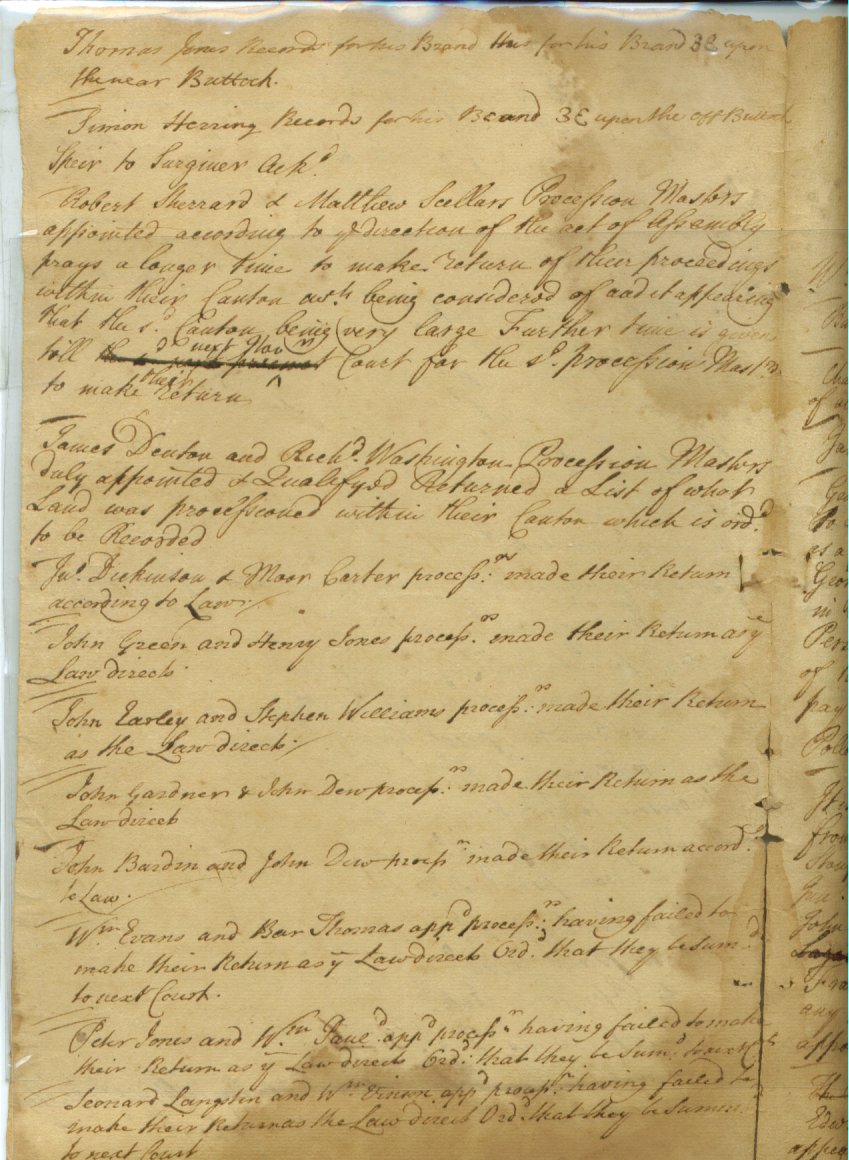 Thomas Jones Records for his Brand thus for his Brand 3E upon
the near Buttock.
Simon Herring Records for his Brand 3E upon the off Buttock
Speir to Surginer Ack.d
Robert Sherrard & Matthew Scellars Procession Masters
appointed according to ye direction of the act of Assembly
prays a longer time to make Return of their proceedings
within their Canton being considered of and it appearing
that the s.d Canton being very large Further time is given
till next Court for the s.d procession Mast.rs
to make their Return
James Denton and Rich.d Washington Procession Masters
duly appointed & Qualifyed Returned a List of what
Land was processioned within their Canton which is ord.d
to be Recorded
Jn.o Dickinson & Moor Carter process:rs made their Return
according to Law
John Green and Henry Jones process.rs made their Return as ye
Law directs
John Earley and Stephen Williams process:rs made their Return
as the Law directs
John Gardner & John Dew process:rs made their Return as the
Law direct
John Bardin and John Dew process.rs made their Return accord.g
to Law.
Wm Evans and Bar Thomas app.d process:rs having failed to
make their Return as ye Law directs Ord.d that they be Sum.d
to next Court.
Peter Jones and W.m app.d process.rs having failed to make
their Return as ye Law directs Ord.d that they be Sum.d to next
Leonard Langstin and W.m app.d process.rs having failed to
make their Return as the Law direct Ord.d that they be Summ
to next Court